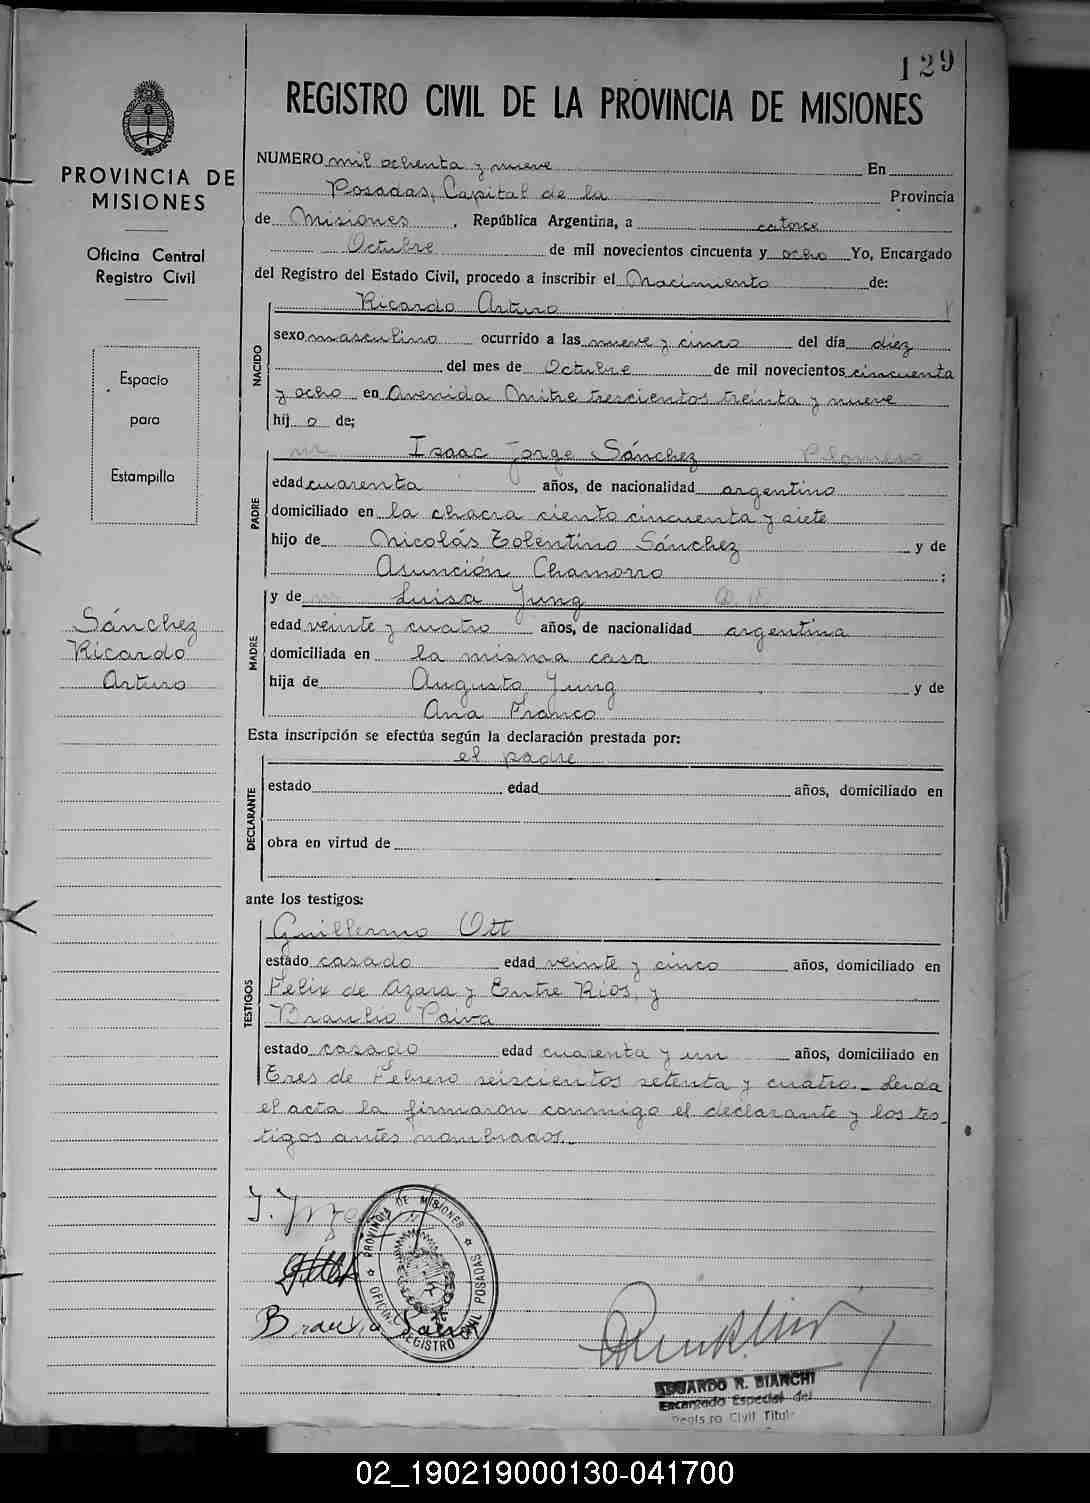 129
REGISTRO CIVIL DE LA PROVINCIA DE MISIONES
PROVINCIA DE
MISIONES
Oficina Central
Registro Civil
Espacio
para
Estampilla
Sánchez
Ricardo
Arturo
NUMERO mil ochenta y nueve En
Posadas, Capital de la Provincia
de Misiones, República Argentina, a catorce
Octubre de mil novecientos cincuenta y ocho Yo, Encargado
del Registro del Estado Civil, procedo a inscribir el Nacimiento de:
NACIDO
Ricardo Arturo
sexo masculino ocurrido a las nueve y cinco del día diez
del mes de Octubre de mil novecientos cincuenta
y ocho en Avenida Mitre trescientos treinta y nueve
hij o de;
PADRE
Isaac Jorge Sánchez
edad cuarenta años, de nacionalidad argentino
domiciliado en la chacra ciento cincuenta y siete
hijo de Nicolás Tolentino Sánchez y de
Asunción Chamorro ;
MADRE
y de Luisa Jung
edad veinte y cuatro años, de nacionalidad argentina
domiciliada en la misma casa
hija de Augusto Jung y de
Ana Franco
Esta inscripción se efectúa según la declaración prestada por:
DECLARANTE
el padre
estado edad años, domiciliado en
obra en virtud de
ante los testigos:
TESTIGOS
Guillermo Ott
estado casado edad veinte y cinco años, domiciliado en
Felix de Azara y Entre Rios, y
Braulio Paiva
estado casado edad cuarenta y un años, domiciliado en
Tres de Febrero seiscientos setenta y cuatro.- Leida
el acta la firmaron conmigo el declarante y los tes-
tigos antes nombrados.-
PROVINCIA DE MISIONES
OFICINA REGISTRO CIVIL POSADAS
Braulio Paiva
EDUARDO R. BIANCHI
Encargado Especial del
Registro Civil Titular
02_190219000130-041700